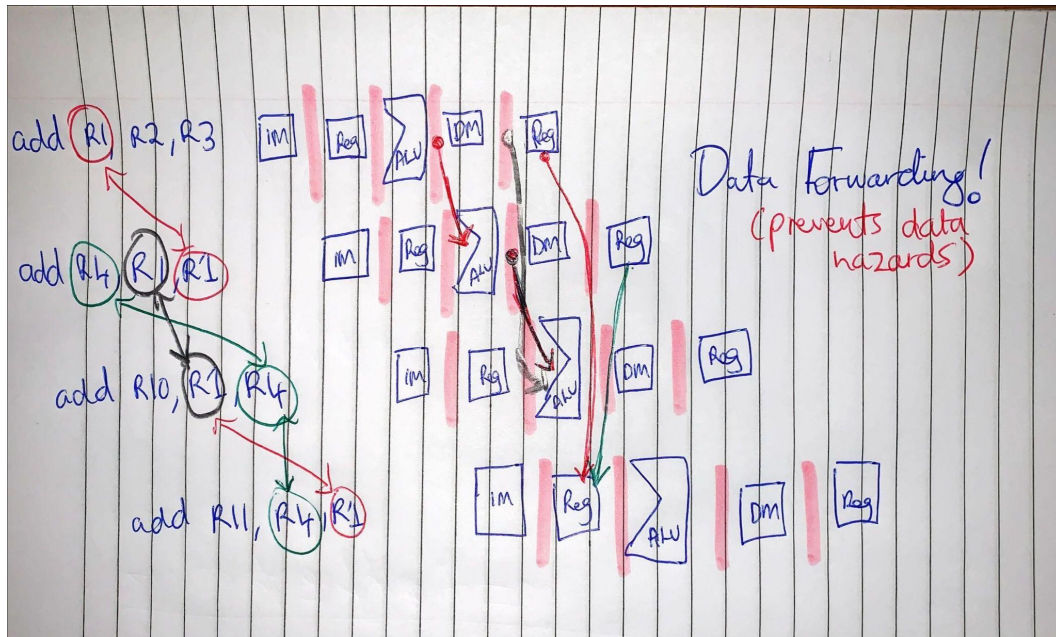 add R1, R2, R3 IM Reg ALU DM Reg
Data Forwarding!
(prevents data
hazards)
add R4, R1, R1 IM Reg ALU DM Reg
add R10, R1, R4 IM Reg ALU DM Reg
add R11, R4, R1 IM Reg ALU DM Reg